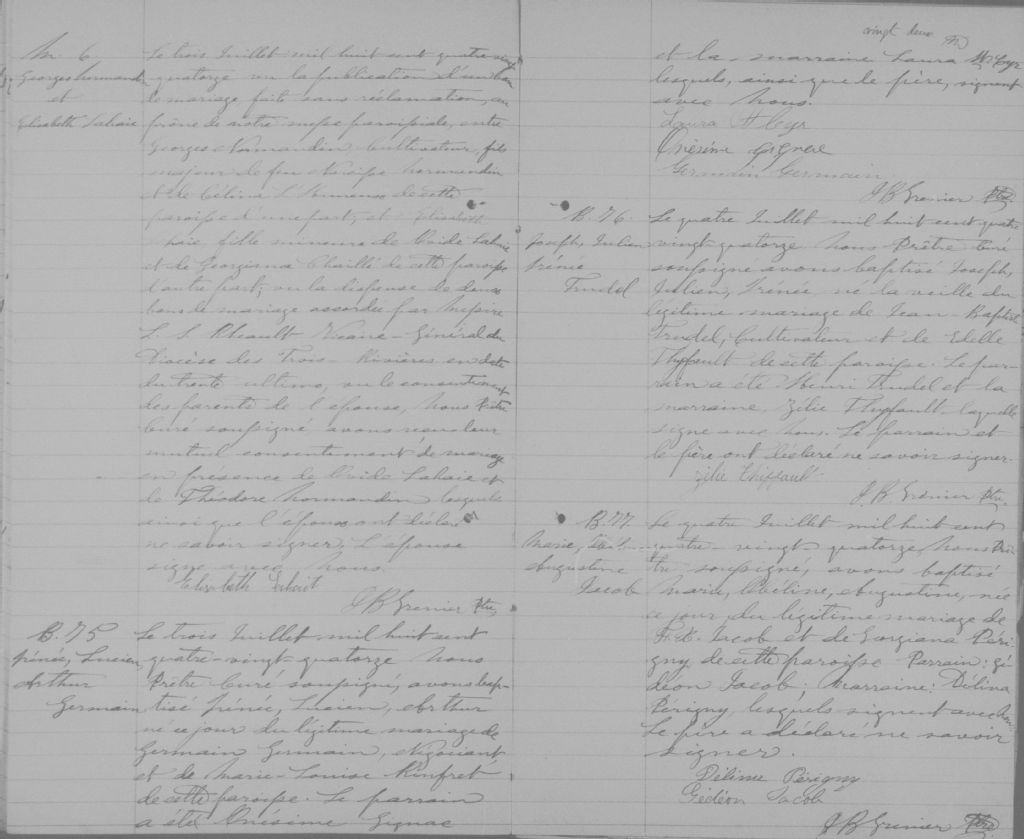 M. 6
Georges Normandin
et
Elisabeth Lahaie
Le trois Juillet mil huit cent quatre vingt
quatorze vu la publication d'un ban
de mariage faite sans réclamation, au
prône de notre messe paroissiale, entre
Georges Normandin Cultivateur, fils
majeur de feu Narcisse Normandin
et de Célina L'Heureux de cette
paroisse d'une part; et Elisabeth
Lahaie, fille mineure de Ovide Lahaie
et de Georgina Chaillé de cette paroisse
d'autre part; vu la dispense de deux
bans de mariage accordée par Messire
L. S. Rheault Vicaire-Général du
Diocèse des Trois-Rivières en date
du trente ultimo, vu le consentement
des parents de l'épouse, Nous Prêtre
Curé soussigné avons reçu leur
mutuel consentement de mariage
en présence de Ovide Lahaie et
de Théodore Normandin lesquels
ainsi que l'époux ont déclaré
ne savoir signer. L'épouse
signe avec Nous.
Elisabeth
J B Grenier Ptre
B. 75
Irénée, Lucien
Arthur
Germain
Le trois Juillet mil huit cent
quatre-vingt-quatorze Nous
Prêtre Curé soussigné, avons bap-
tisé Irénée, Lucien, Arthur
né ce jour du légitime mariage de
Germain Germain, Négociant
et de Marie-Louise Rinfret
de cette paroisse. Le parrain
a été Onésime Gignac
vingt deux
et la marraine Laura St Cyr
lesquels, ainsi que le père, signent
avec Nous.
Laura St Cyr
Onésime Gignac
Germain Germain
J B Grenier Ptre.
B. 76
Joseph, Julien
Irénée
Trudel
Le quatre Juillet mil huit cent quatre
vingt-quatorze Nous Prêtre Curé
soussigné avons baptisé Joseph,
Julien, Irénée, né la veille du
légitime mariage de Jean-Baptiste
Trudel, Cultivateur et de Edelle
Thyffault de cette paroisse. Le par-
rain a été Henri Trudel et la
marraine, Zélie Thyffault laquelle
signe avec Nous. Le parrain et
le père ont déclaré ne savoir signer.
Zélie Thiffault
J. B Grenier Ptre.
B. 77
Marie,
Augustine
Jacob
Le quatre Juillet mil huit cent
quatre-vingt-quatorze, Nous Prê-
tre soussigné, avons baptisé
Marie, Augustine, née
ce jour du légitime mariage de
Jacob et de Gorgiana Péri-
gny de cette paroisse Parrain: Gé-
déon Jacob; Marraine: Délina
Périgny, lesquels signent avec Nous.
Le père a déclaré ne savoir
signer.
Délina Périgny
Gédéon Jacob
J B Grenier Ptre